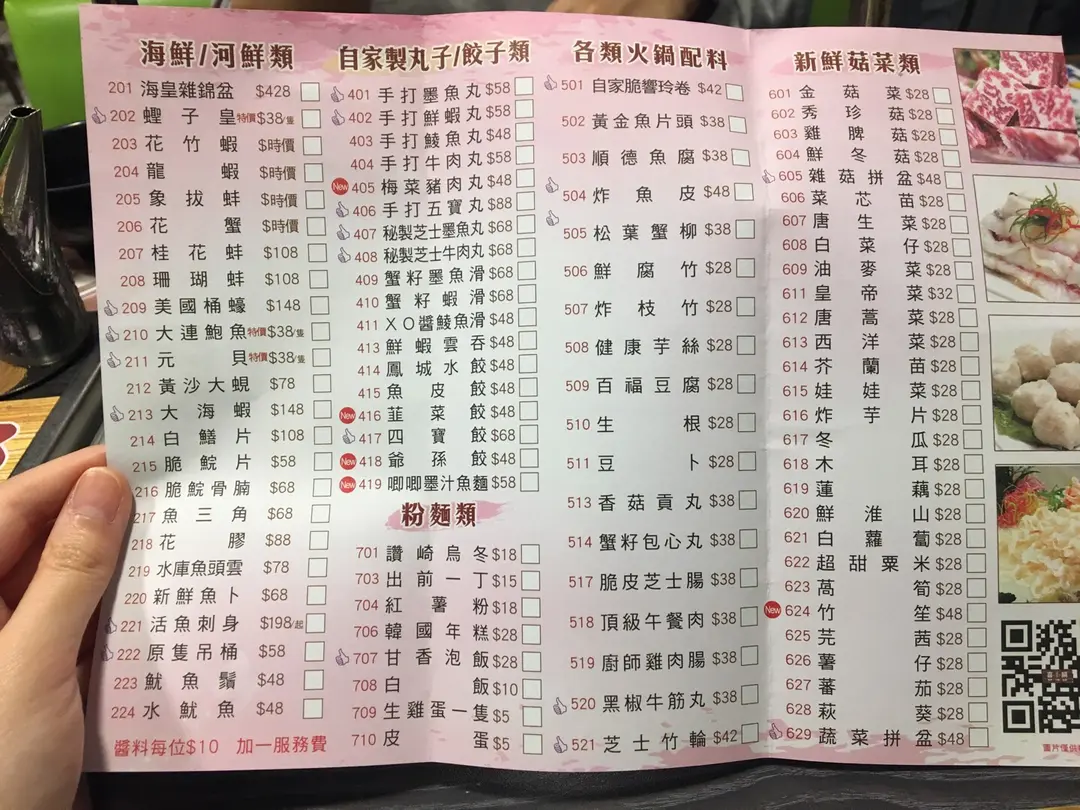 海鮮/河鮮類
201 海皇雜錦盆 $428
202 蟶子皇 特價$38/隻
203 花竹蝦 $時價
204 龍蝦 $時價
205 象拔蚌 $時價
206 花蟹 $時價
207 桂花蚌 $108
208 珊瑚蚌 $108
209 美國桶蠔 $148
210 大連鮑魚 特價$38/隻
211 元貝 特價$38/隻
212 黃沙大蜆 $78
213 大海蝦 $148
214 白鱔片 $108
215 脆鯇片 $58
216 脆鯇骨腩 $68
217 魚三角 $68
218 花膠 $88
219 水庫魚頭雲 $78
220 新鮮魚卜 $68
221 活魚刺身 $198/起
222 原隻吊桶 $58
223 魷魚鬚 $48
224 水魷魚 $48
醬料每位$10 加一服務費
自家製丸子/餃子類
401 手打墨魚丸 $58
402 手打鮮蝦丸 $58
403 手打鯪魚丸 $48
404 手打牛肉丸 $58
New 405 梅菜豬肉丸 $48
406 手打五寶丸 $88
407 秘製芝士墨魚丸 $68
408 秘製芝士牛肉丸 $68
409 蟹籽墨魚滑 $68
410 蟹籽蝦滑 $68
411 XO醬鯪魚滑 $48
413 鮮蝦雲吞 $48
414 鳳城水餃 $48
415 魚皮餃 $48
New 416 韮菜餃 $48
417 四寶餃 $68
New 418 爺孫餃 $48
New 419 唧唧墨汁魚麵 $58
粉麵類
701 讚崎烏冬 $18
703 出前一丁 $15
704 紅薯粉 $18
706 韓國年糕 $28
707 甘香泡飯 $28
708 白飯 $10
709 生雞蛋一隻 $5
710 皮蛋 $5
各類火鍋配料
501 自家脆響玲卷 $42
502 黃金魚片頭 $38
503 順德魚腐 $38
504 炸魚皮 $48
505 松葉蟹柳 $38
506 鮮腐竹 $28
507 炸枝竹 $28
508 健康芋絲 $28
509 百福豆腐 $28
510 生根 $28
511 豆卜 $28
513 香菇貢丸 $38
514 蟹籽包心丸 $38
517 脆皮芝士腸 $38
518 頂級午餐肉 $38
519 廚師雞肉腸 $38
520 黑椒牛筋丸 $38
521 芝士竹輪 $42
新鮮菇菜類
601 金菇菜 $28
602 秀珍菇 $28
603 雞脾菇 $28
604 鮮冬菇 $28
605 雜菇拼盆 $48
606 菜芯苗 $28
607 唐生菜 $28
608 白菜仔 $28
609 油麥菜 $28
611 皇帝菜 $32
612 唐蒿菜 $28
613 西洋菜 $28
614 芥蘭苗 $28
615 娃娃菜 $28
616 炸芋片 $28
617 冬瓜 $28
618 木耳 $28
619 蓮藕 $28
620 鮮淮山 $28
621 白蘿蔔 $28
622 超甜粟米 $28
623 萵筍 $28
New 624 竹笙 $48
625 芫茜 $28
626 薯仔 $28
627 蕃茄 $28
628 萩葵 $28
629 蔬菜拼盆 $48
圖片僅供